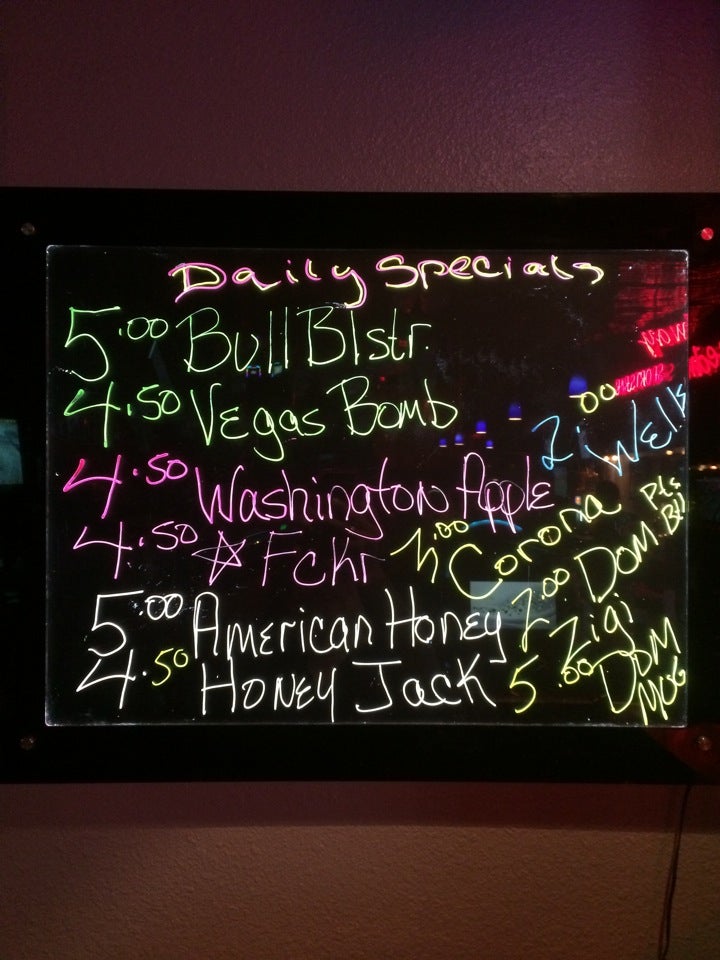 Daily Specials
5.00 Bull Blstr.
4.50 Vegas Bomb
4.50 Washington Apple
4.50 ☆ Fckr
5.00 American Honey
4.50 Honey Jack
2.00 Wells
3.00 Corona
2.00 DOM
Zigi
5.00 DOM
MUG